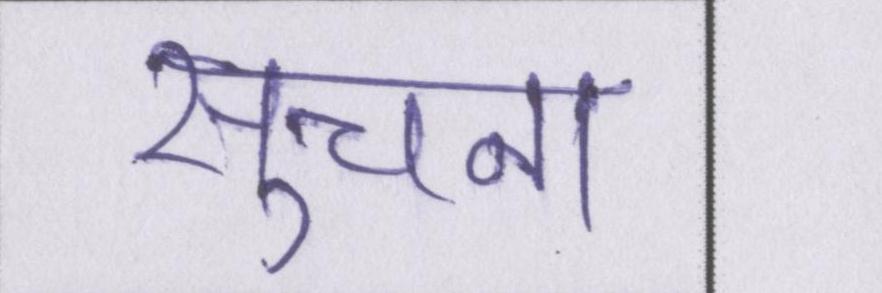 सुचना